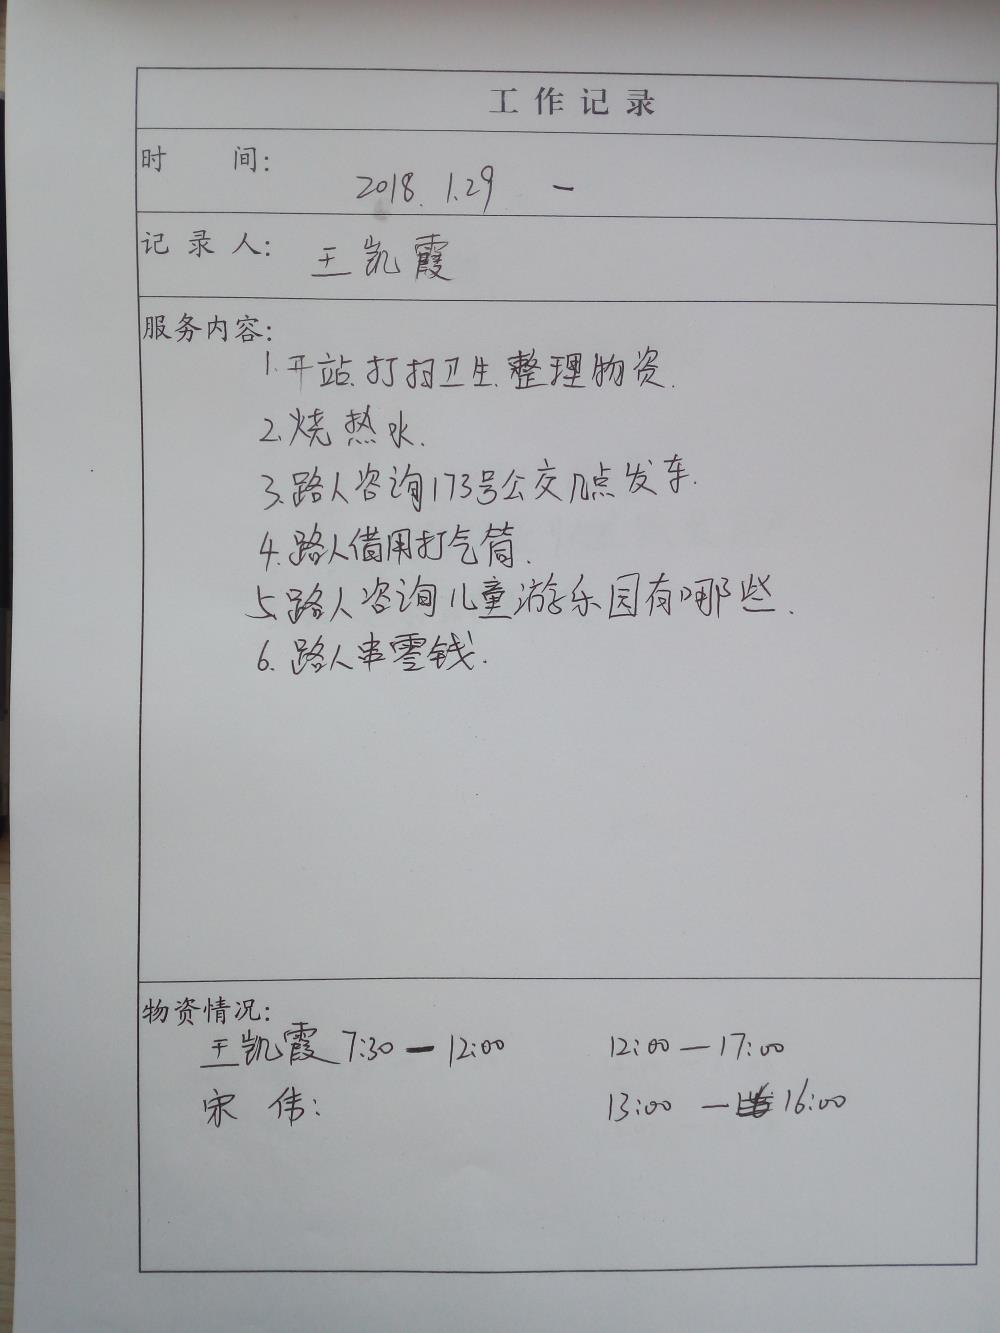 工作记录
时 间: 2018.1.29 一
记录人: 王凯霞
服务内容:
1.开站.打扫卫生.整理物资.
2.烧热水.
3.路人咨询173号公交几点发车.
4.路人借用打气筒.
5.路人咨询儿童游乐园有哪些.
6.路人串零钱.
物资情况:
王凯霞 7:30 — 12:00 12:00 — 17:00
宋 伟: 13:00 — 16:00